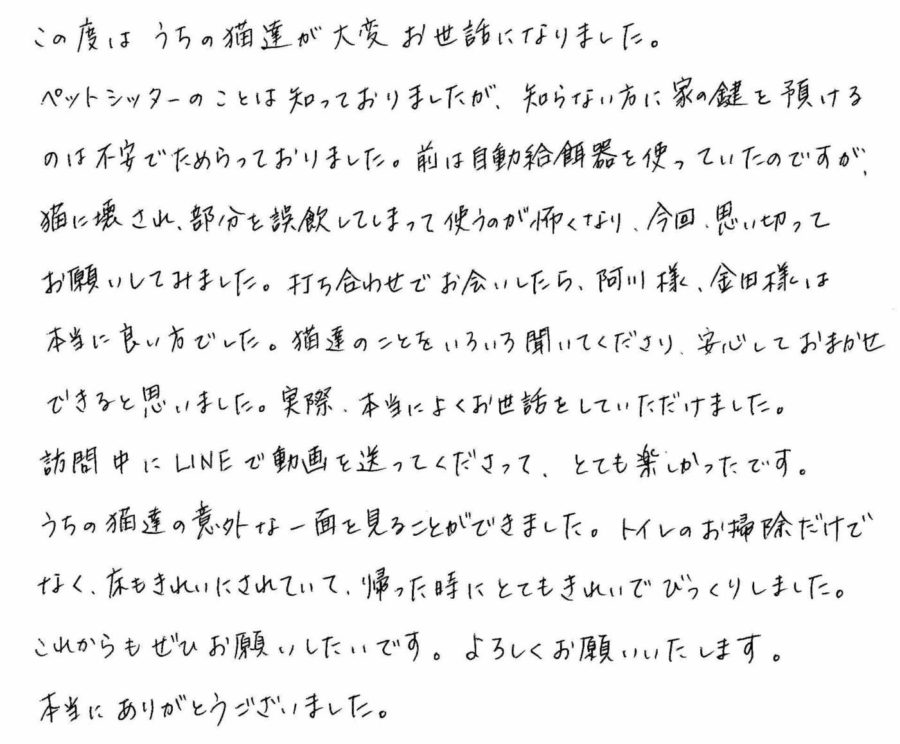 この度は うちの猫達が 大変 お世話になりました。
ペットシッターのことは知っておりましたが、知らない方に家の鍵を預ける
のは不安でためらっておりました。前は自動給餌器を使っていたのですが、
猫に壊され、部分を誤飲してしまって使うのが怖くなり、今回、思い切って
お願いしてみました。打ち合わせでお会いしたら、阿川様、金田様は
本当に良い方でした。猫達のことをいろいろ聞いてくださり、安心しておまかせ
できると思いました。実際、本当によくお世話をしていただけました。
訪問中にLINEで動画を送ってくださって、とても楽しかったです。
うちの猫達の意外な一面を見ることができました。トイレのお掃除だけで
なく、床もきれいにされていて、帰った時にとてもきれいでびっくりしました。
これからもぜひお願いしたいです。よろしくお願いいたします。
本当にありがとうございました。